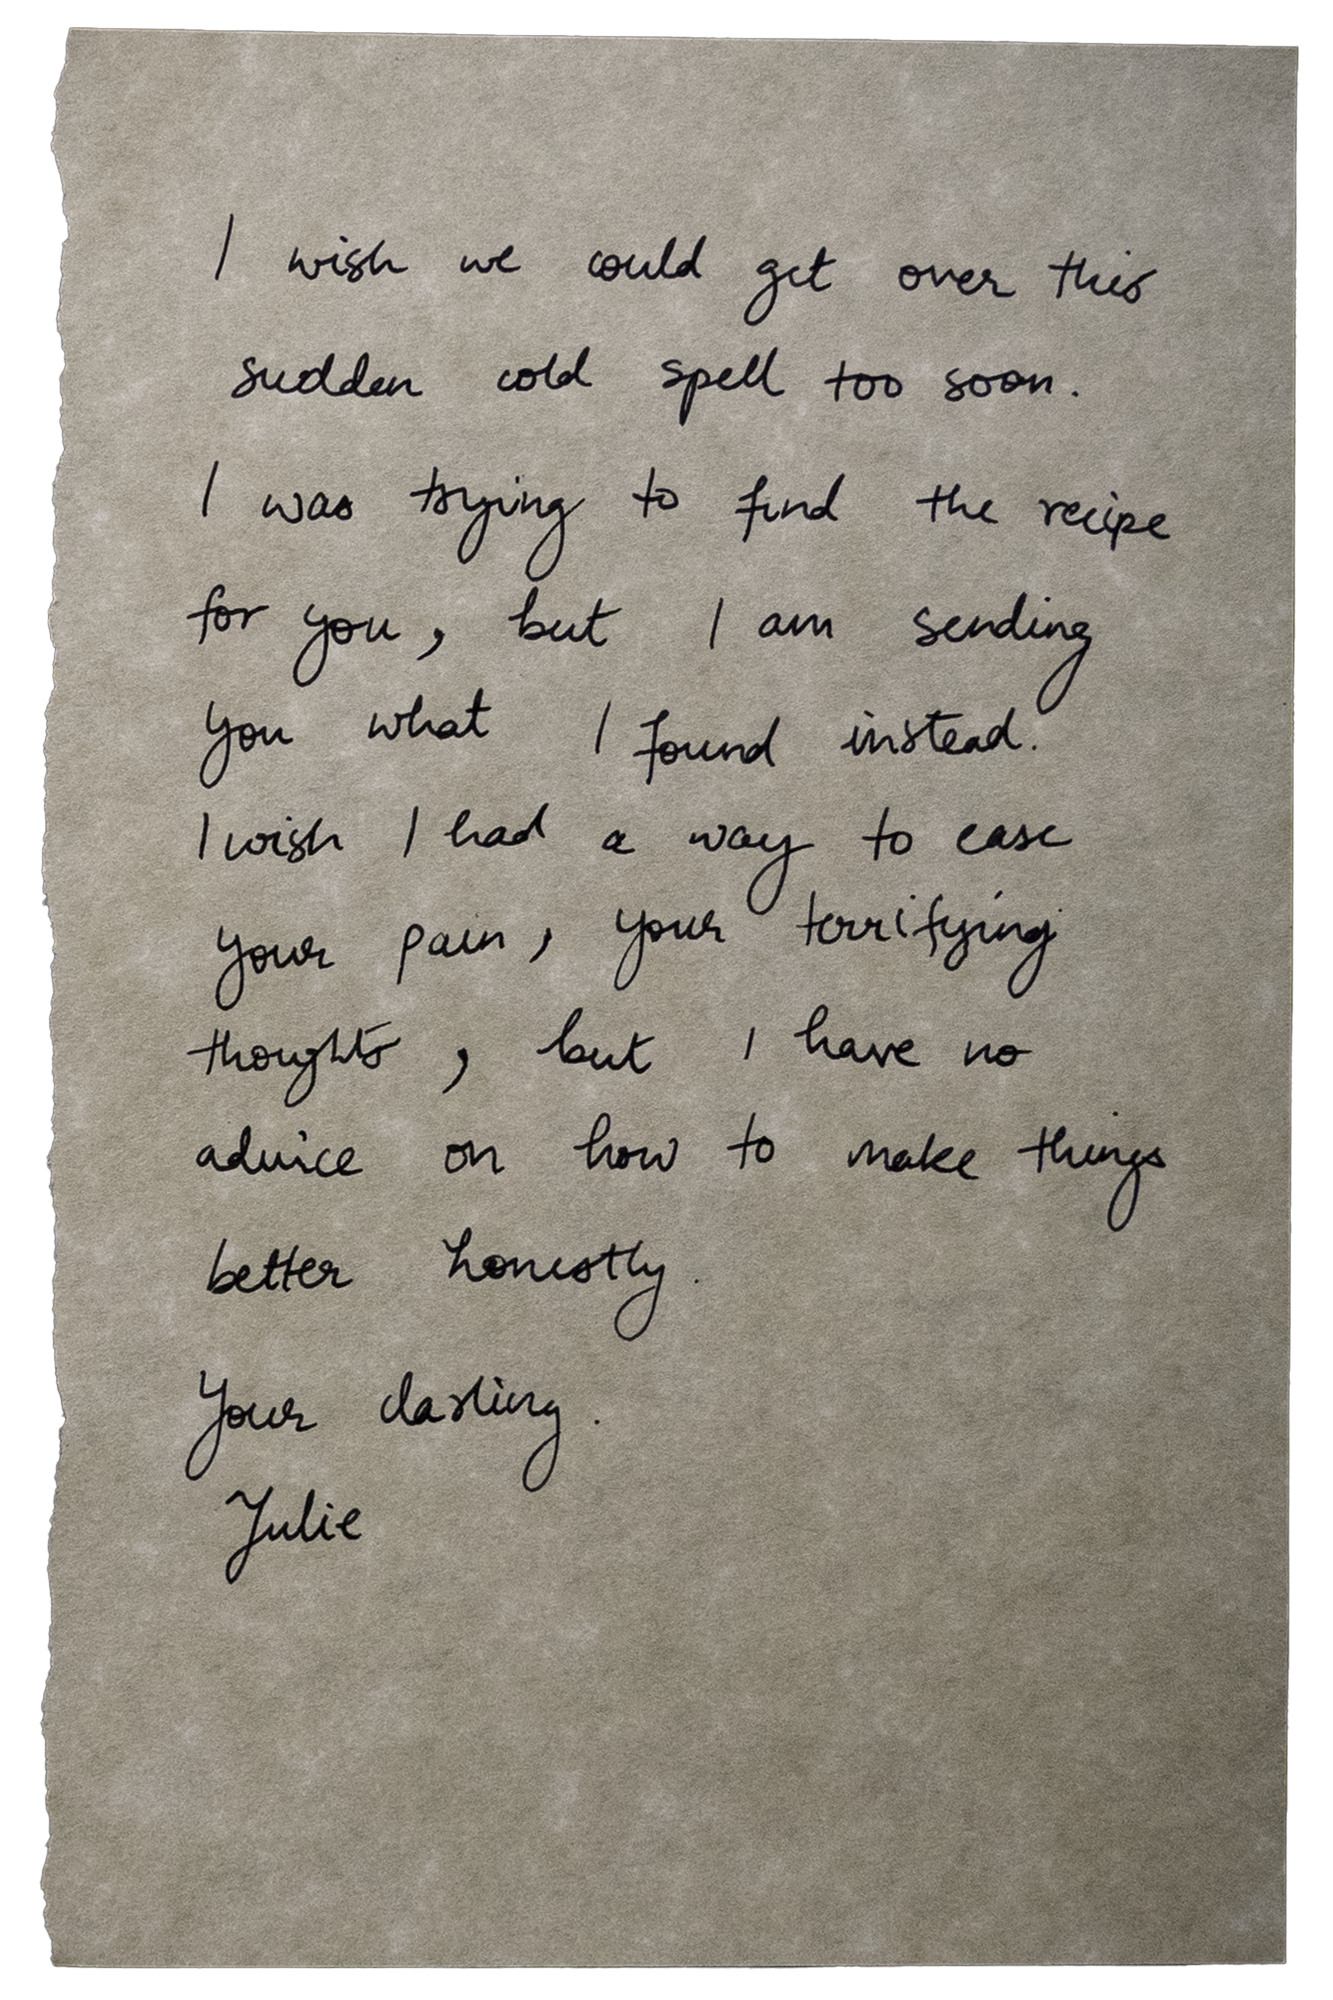 I wish we could get over this
sudden cold spell too soon.
I was trying to find the recipe
for you, but I am sending
you what I found instead.
I wish I had a way to ease
your pain, your terrifying
thoughts, but I have no
advice on how to make things
better honestly.
Your darling.
Julie